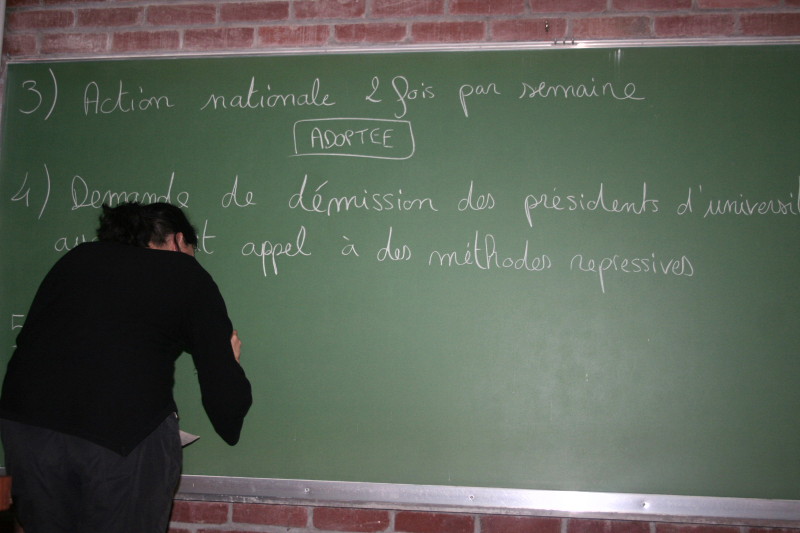 3) Action nationale 2 fois par semaine
ADOPTEE
4) Demande de démission des présidents
appel à des méthodes repressives
5